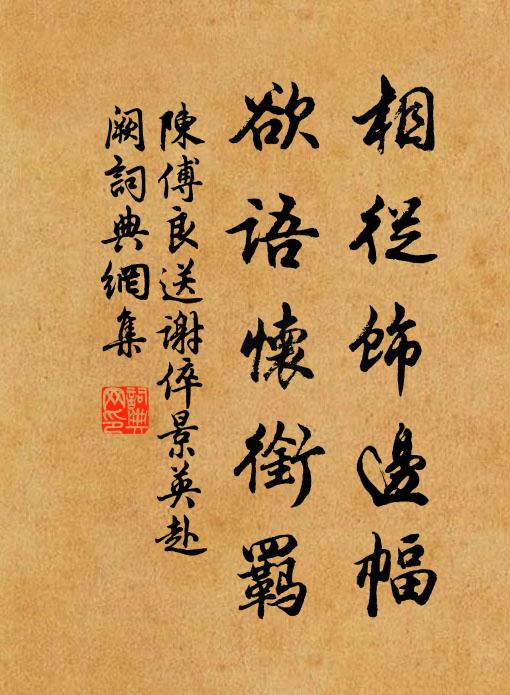 相從飾邊幅
欲語懷銜羈
陳傅良送謝倅景英赴
闕詞典網集
詞典
网印